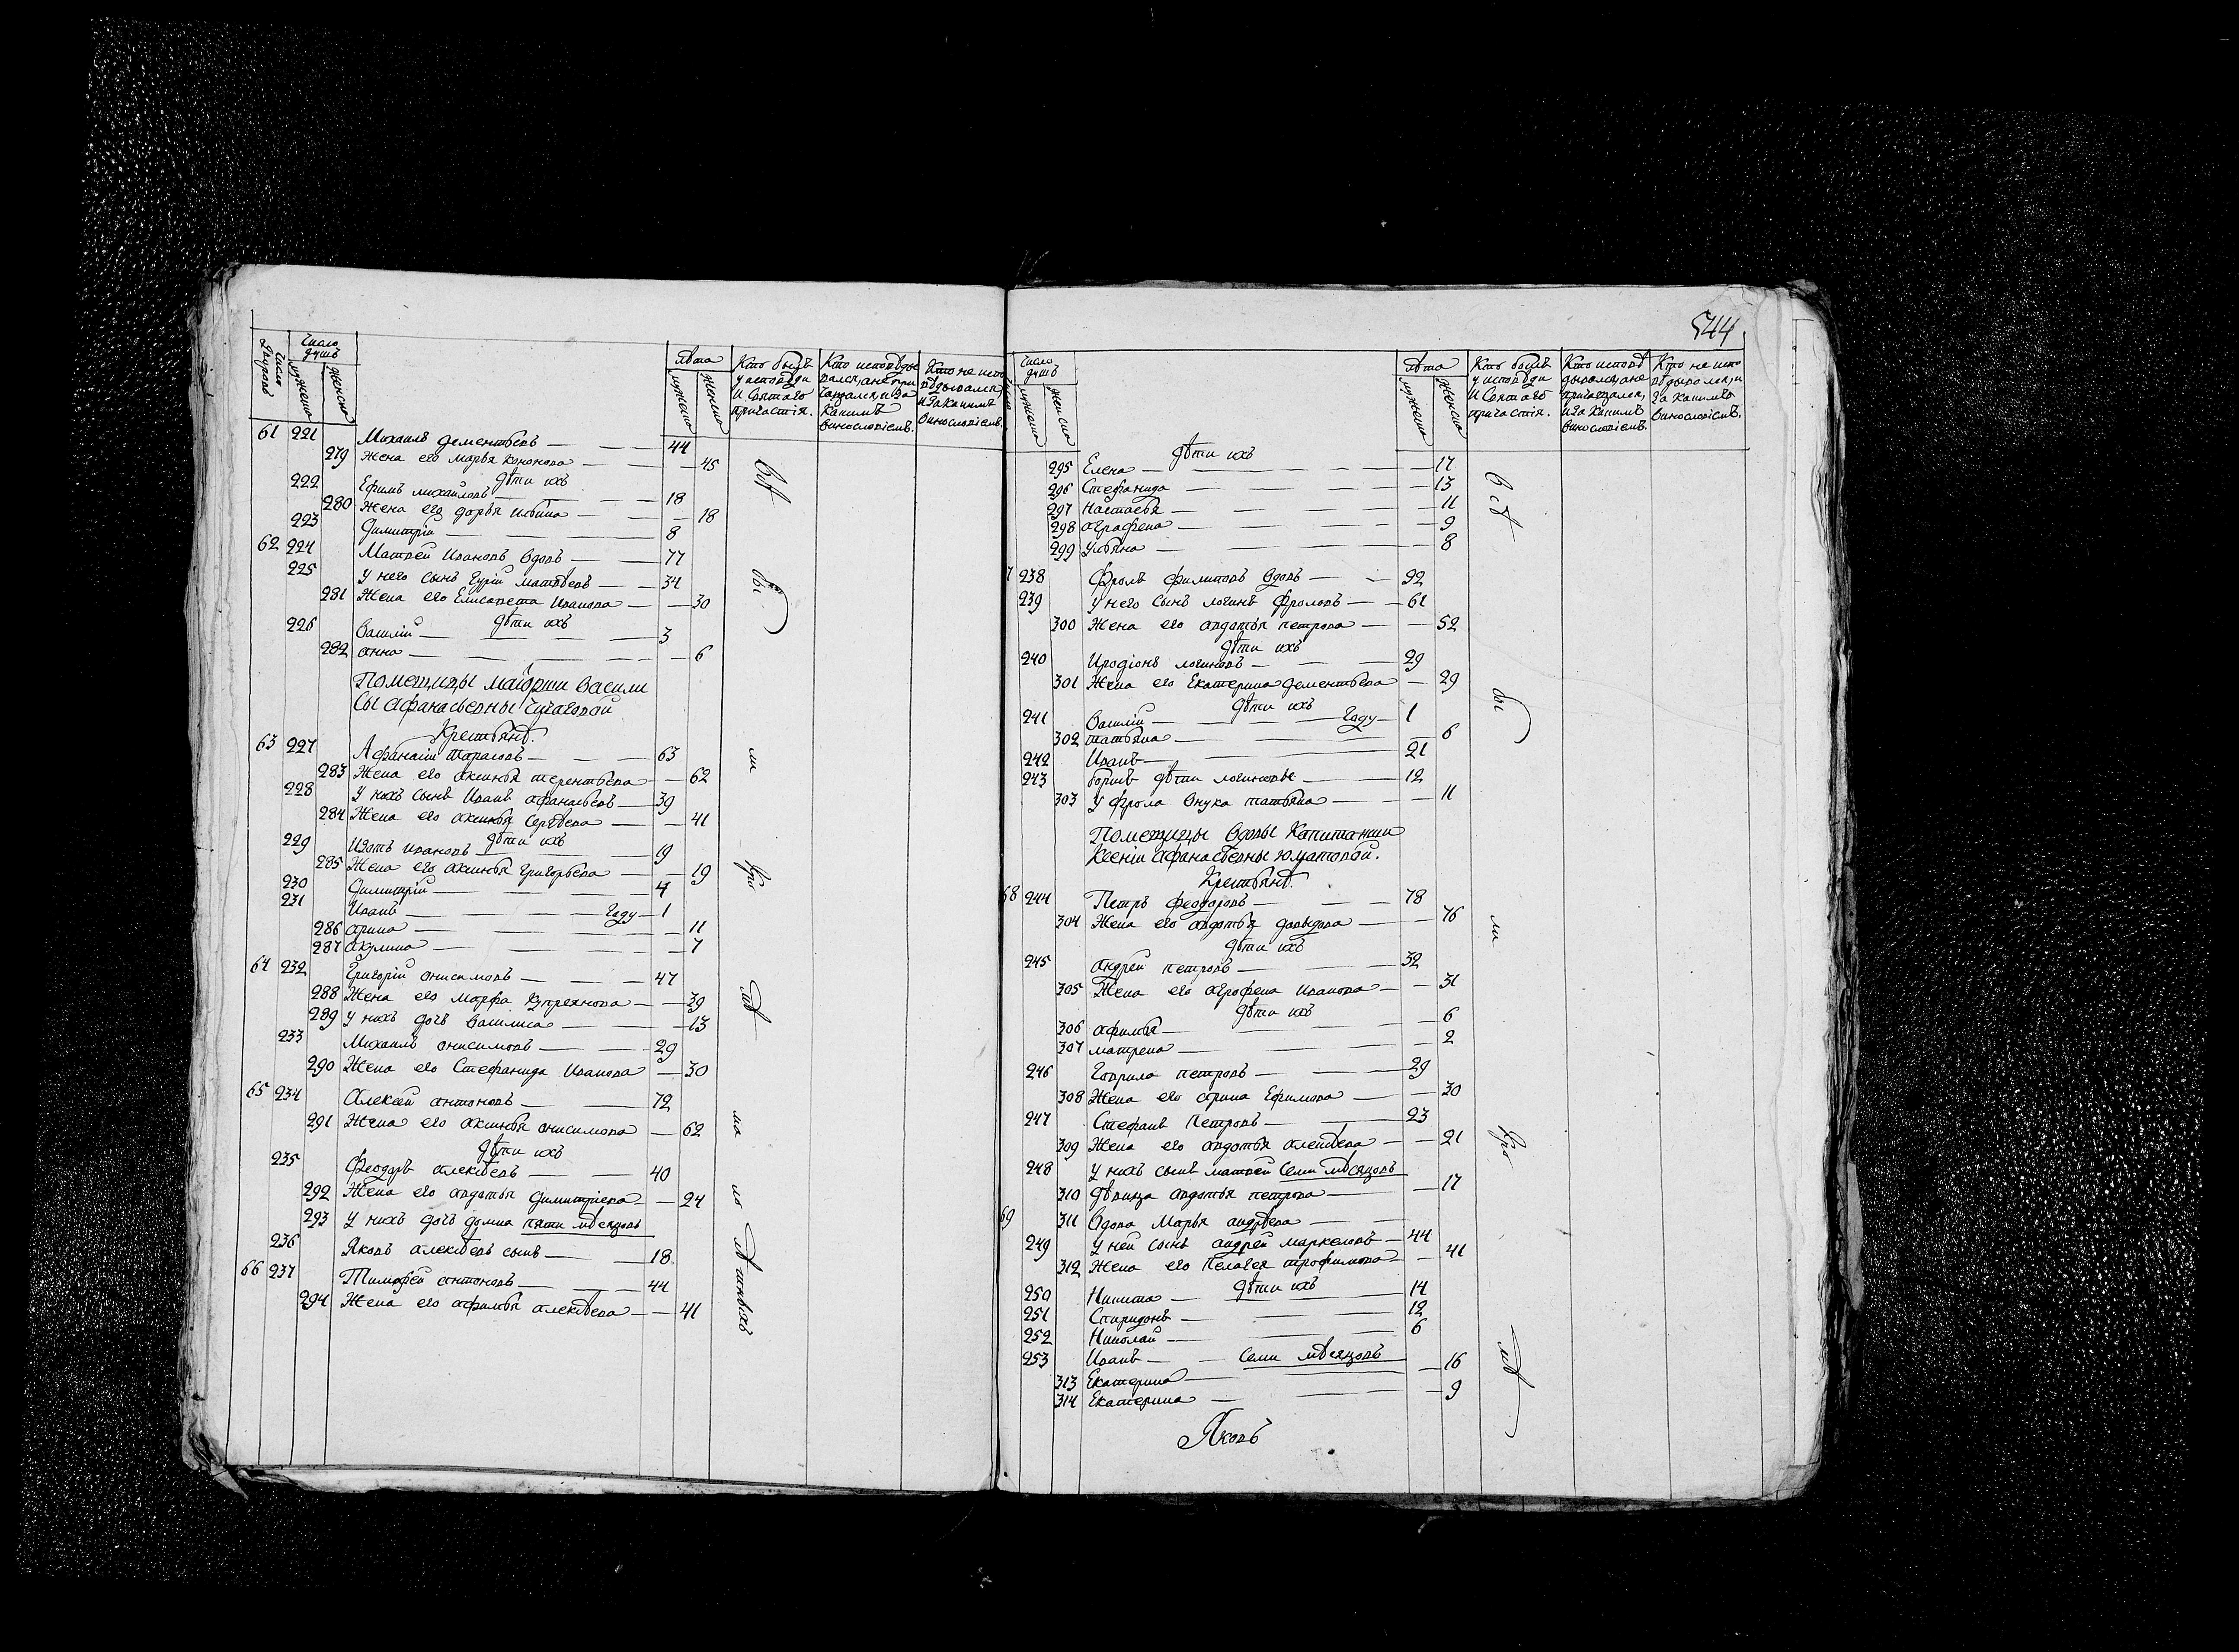 Число дворовъ
Число душъ
мужеска
женска
лѣта
мужеска
женска
Кто былъ у исповѣди и Святаго причастія.
Кто исповѣдывался, а не причащался, и за какимъ винословіемъ.
Кто не исповѣдывался, и за какимъ винословіемъ.
61 221 Михаилъ дементьевъ 44
279 Жена его марья кононова 45
дѣти ихъ
222 Ефимъ михайловъ 18
280 Жена его дарья ильина 18
223 Димитрій 8
62 224 Матвей Ивановъ вдовъ 77
225 У него сынъ гурій матвѣевъ 34
281 Жена его Елисавета Иванова 30
дѣти ихъ
226 Василій 3
282 анна 6
Помещицы маіорши Васили
сы Афанасьевны
Крестьянѣ.
63 227 Афанасій Тарасовъ 63
283 Жена его аксинья терентьева 62
228 У нихъ сынъ Иванъ афанасьевъ 39
284 Жена его аксинья Сергѣева 41
дѣти ихъ
229 Изотъ ивановъ 19
285 Жена его аксинья григорьева 19
230 Димитрій 4
231 Иванъ году 1
286 арина 11
287 акулина 7
64 232 Григорій анисимовъ 47
288 Жена его Марфа купреянова 39
289 У нихъ дочь василиса 13
233 Михаилъ анисимовъ 29
290 Жена его Стефанида Иванова 30
65 234 Алексѣй антоновъ 72
291 Жена его аксинья анисимова 62
дѣти ихъ
235 Феодоръ алексѣевъ 40
292 Жена его авдотья димитріева 24
293 У нихъ дочь домна пяти мѣсяцовъ
236 Яковъ алексѣевъ сынъ 18
66 237 Тимофей антоновъ 44
294 Жена его афимья алексѣева 41
всѣ
бы
ли
кро
мѣ
ма
ло
лѣтныхъ
544
Число душъ
мужеска
женска
лѣта
мужеска
женска
Кто былъ у исповѣди и Святаго причастія.
Кто исповѣдывался, а не причащался, и за какимъ винословіемъ.
Кто не исповѣдывался, и за какимъ винословіемъ.
дѣти ихъ
295 Елена 17
296 Стефанида 13
297 Настасья 11
298 аграфена 9
299 ульяна 8
7 238 Фролъ филиповъ вдовъ 92
239 У него сынъ логинъ фроловъ 61
300 Жена его авдотья петрова 52
дѣти ихъ
240 Иродіонъ логиновъ 29
301 Жена его Екатерина дементьева 29
дѣти ихъ
241 Василій году 1
302 татьяна 6
242 Иванъ 21
243 борисъ дѣти логиновы 12
303 У фрола внука татьяна 11
Помещицы вдовы Капитанши
Ксеніи Афанасьевны юматовой.
Крестьянѣ.
68 244 Петръ феодоровъ 78
304 Жена его авдотья давыдова 76
дѣти ихъ
245 андрей петровъ 32
305 Жена его агрофена Иванова 31
дѣти ихъ
306 афимья 6
307 матрена 2
246 Гаврила петровъ 29
308 Жена его арина Ефимова 30
247 Стефанъ Петровъ 23
309 Жена его авдотья алексѣева 21
248 У нихъ сынъ матвей Семи мѣсяцовъ
310 дѣвица авдотья петрова 17
69 311 Вдова Марья андрѣева
249 У ней сынъ андрей маркеловъ 44
312 Жена его Пелагея трофимова 41
дѣти ихъ
250 Никита 14
251 Спиридонъ 12
252 Николай 6
253 Иванъ Семи мѣсяцовъ
313 Екатерина 16
314 Екатерина 9
Яковъ
всѣ
бы
ли
кро
мѣ